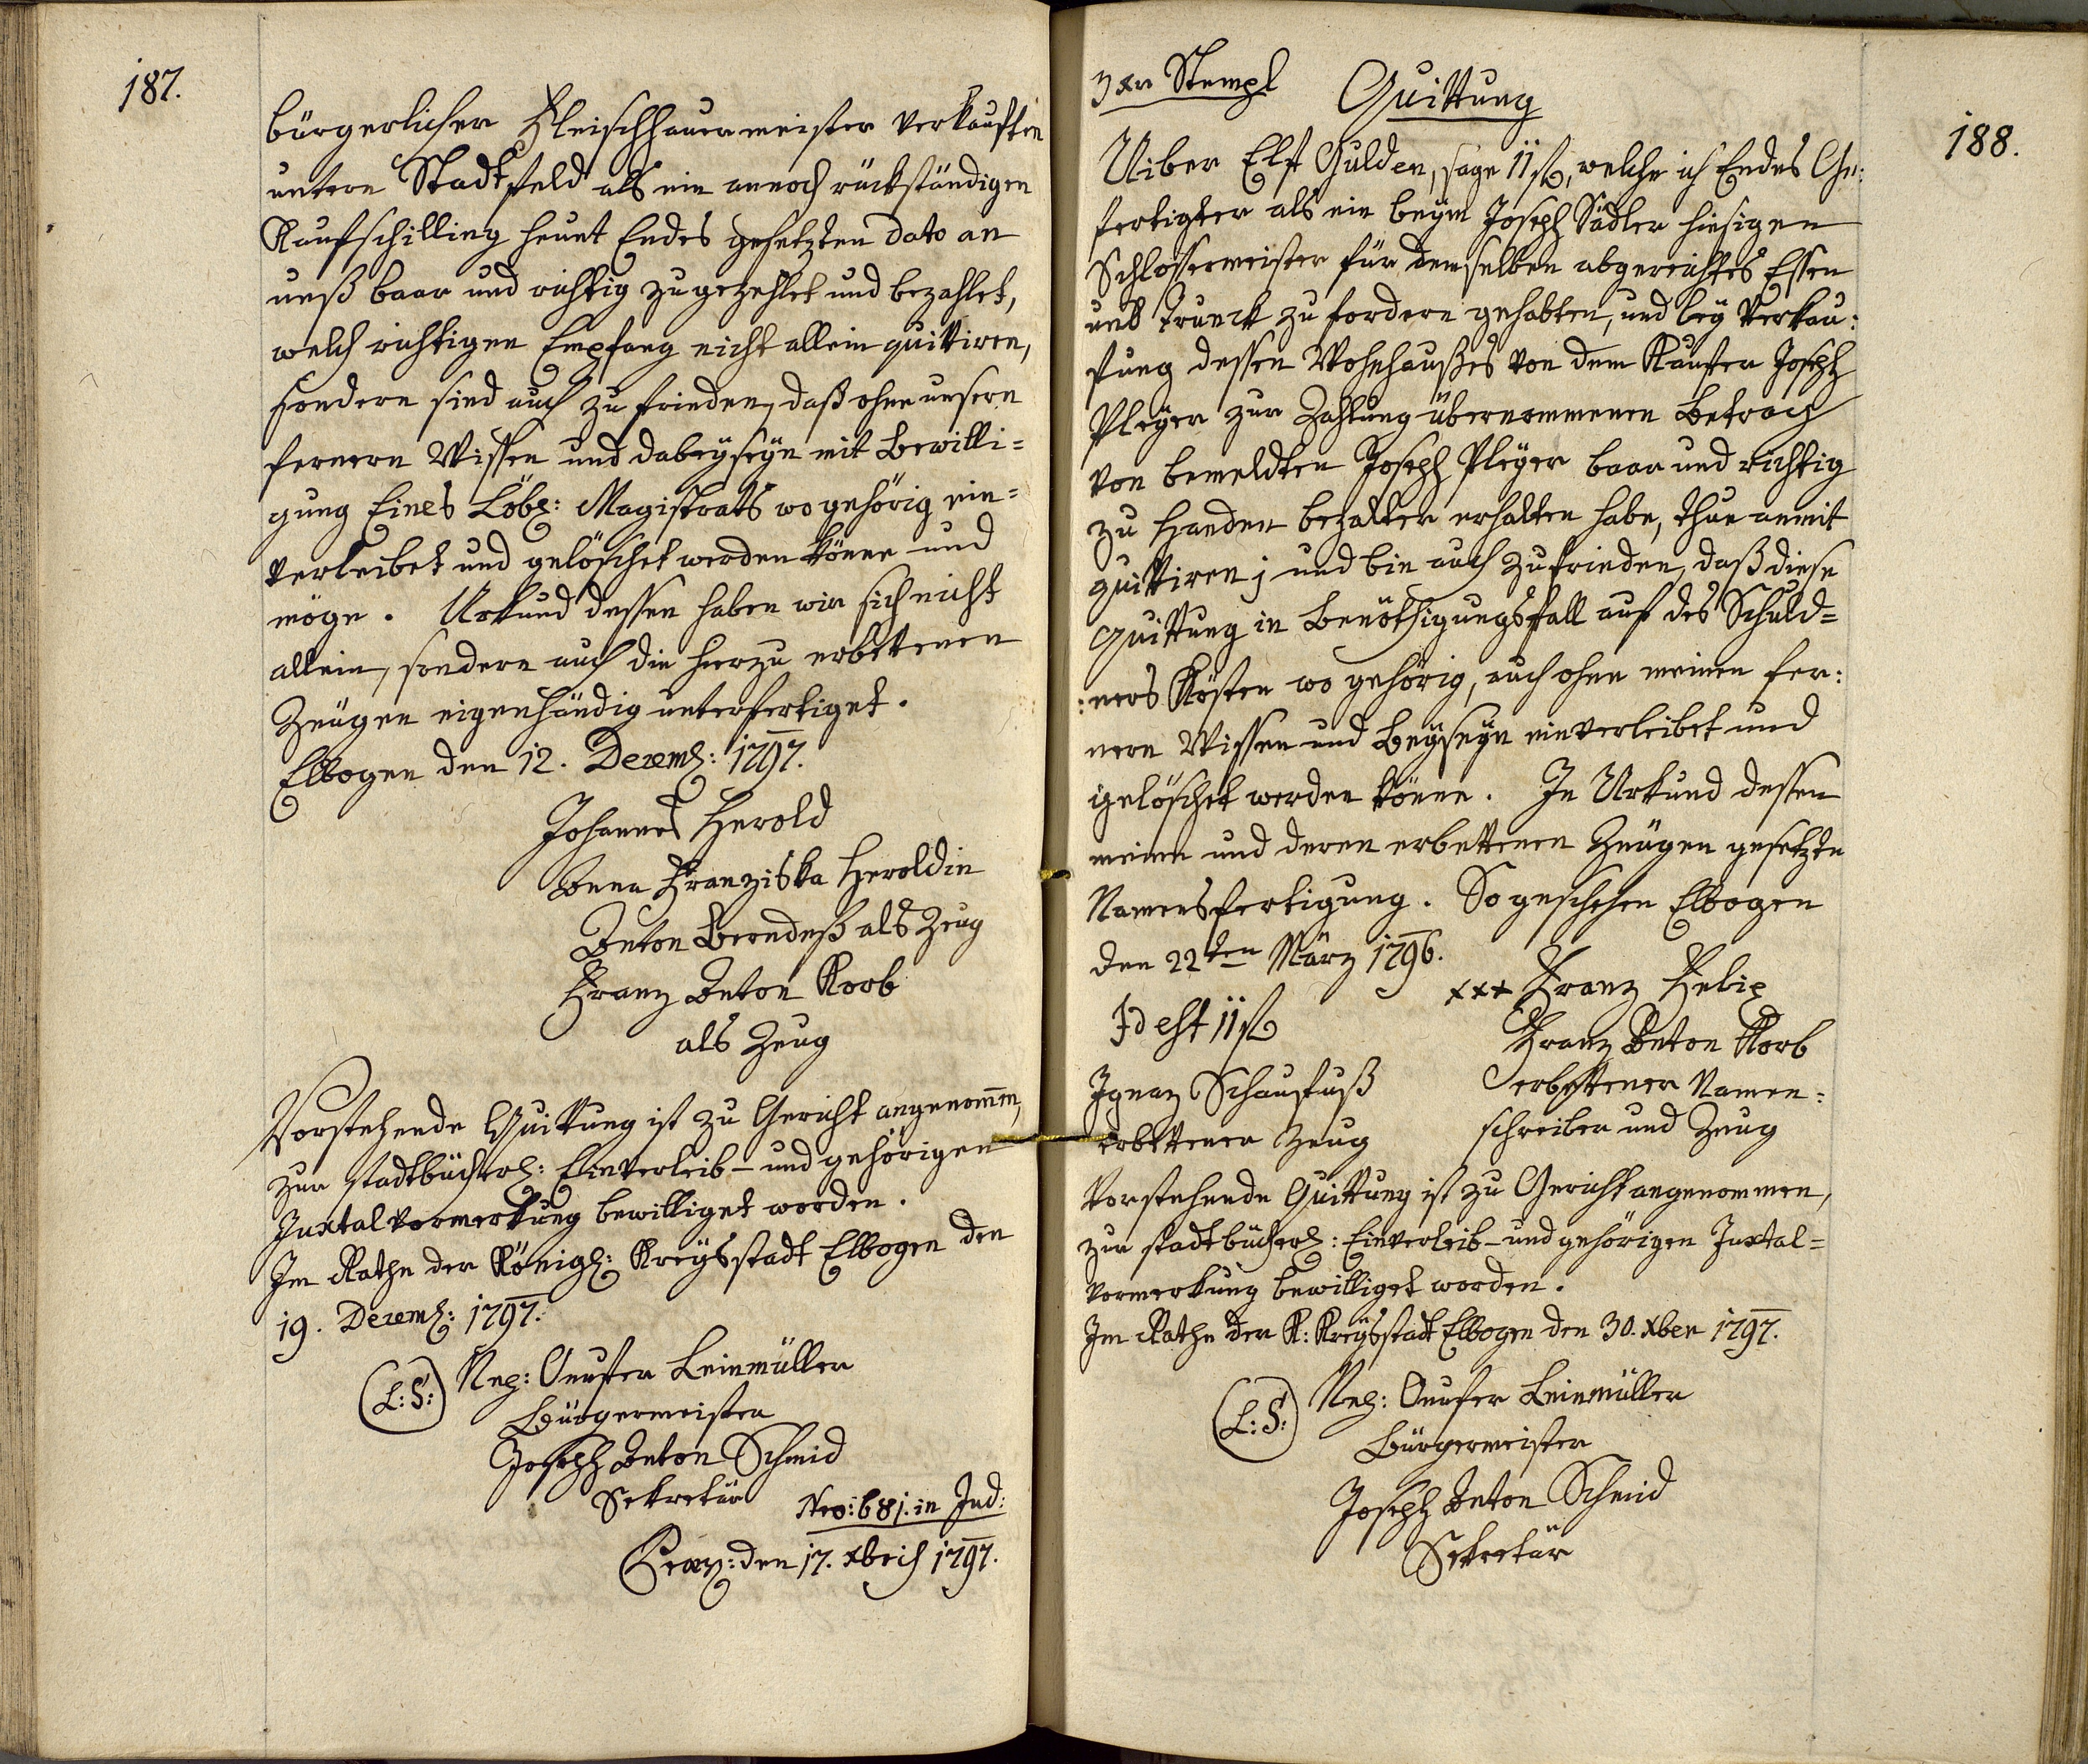 187.
bürgerlicher Fleischhauermeister verkauften
untern Stadtfeld als ein annoch rückständigen
Kaufschilling heunt Endes gesetzten dato an
unß baar und richtig zugezehlet und bezahlet,
welch richtigen Empfang nicht allein quittiren,
sondern sind auch zu frieden, daß ohne unsern
fernern Wissen und dabeyseyn mit Bewilli=
gung Eines Löbl: Magistrats wo gehörig ein=
verleibet und gelöschet werden könne und
möge. Urkund dessen haben wir sich nicht
allein, sondern auch die hierzu erbettenen
Zeugen eigenhändig unterfertiget.
Elbogen den 12. Dezemb: 1797.
Johannes Herold
Anna Franziska Heroldin
Anton Berndeß als Zeug
Franz Anton Korb
als Zeug
Vorstehende Quittung ist zu Gericht angenom̅en,
zur stadtbücherl: Einverleib- und gehörigen
Juxtalvormerkung bewilliget worden.
Im Rathe der Königl: Kreysstadt Elbogen den
19. Dezemb: 1797.
(L:S:) Nep: Onufer Leinmüller
Bürgermeister
Joseph Anton Schmid
Sekretär
Nro: 681. in Jud:
Praes: den 17. Xbris 1797.
3 xr Stempl
Quittung
188.
Uiber Elf Gulden, sage 11 fl, welche ich Endes Ge:
fertigter als ein beym Joseph Sädler hiesigen
Schlossermeister für demselben abgereichtes Essen
und Trunck zu fordern gehabten, und bey Verkau:
fung dessen Wohnhaußes von dem Kaufer Joseph
Pleyer zur Zahlung übernommenen Betrach
von bemeldten Joseph Pleyer baar und richtig
zu Handen bezalter erhalten habe, thue anmit
quittiren; und bin auch zufrieden, daß diese
Quittung in Benöthigungsfall auf des Schuld=
:ners Kösten wo gehörig, auch ohne meinen fer:
nern Wissen und Beyseyn einverleibet und
gelöschet werden könne. In Urkund dessen
meine und deren erbettenen Zeugen gesetzte
Namensfertigung. So geschehen Elbogen
den 22ten März 1796.
xxx Franz Felix
Id est 11 fl
Franz Anton Korb
erbettener Namen:
schreiber und Zeug
Ignaz Schaufuß
erbettener Zeug
Vorstehende Quittung ist zu Gericht angenommen,
zur stadtbücherl: Einverleib- und gehörigen Juxtal=
vormerkung bewilliget worden.
Im Rathe der K: Kreysstadt Elbogen den 30. Xber 1797.
(L:S:) Nep: Onufer Leinmüller
Bürgermeister
Joseph Anton Schmid
Sekretär